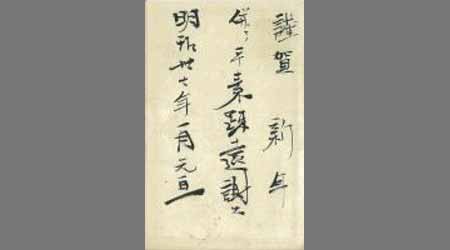 謹賀新年
併テ平素疎遠謝ス
明治卅七年一月元旦